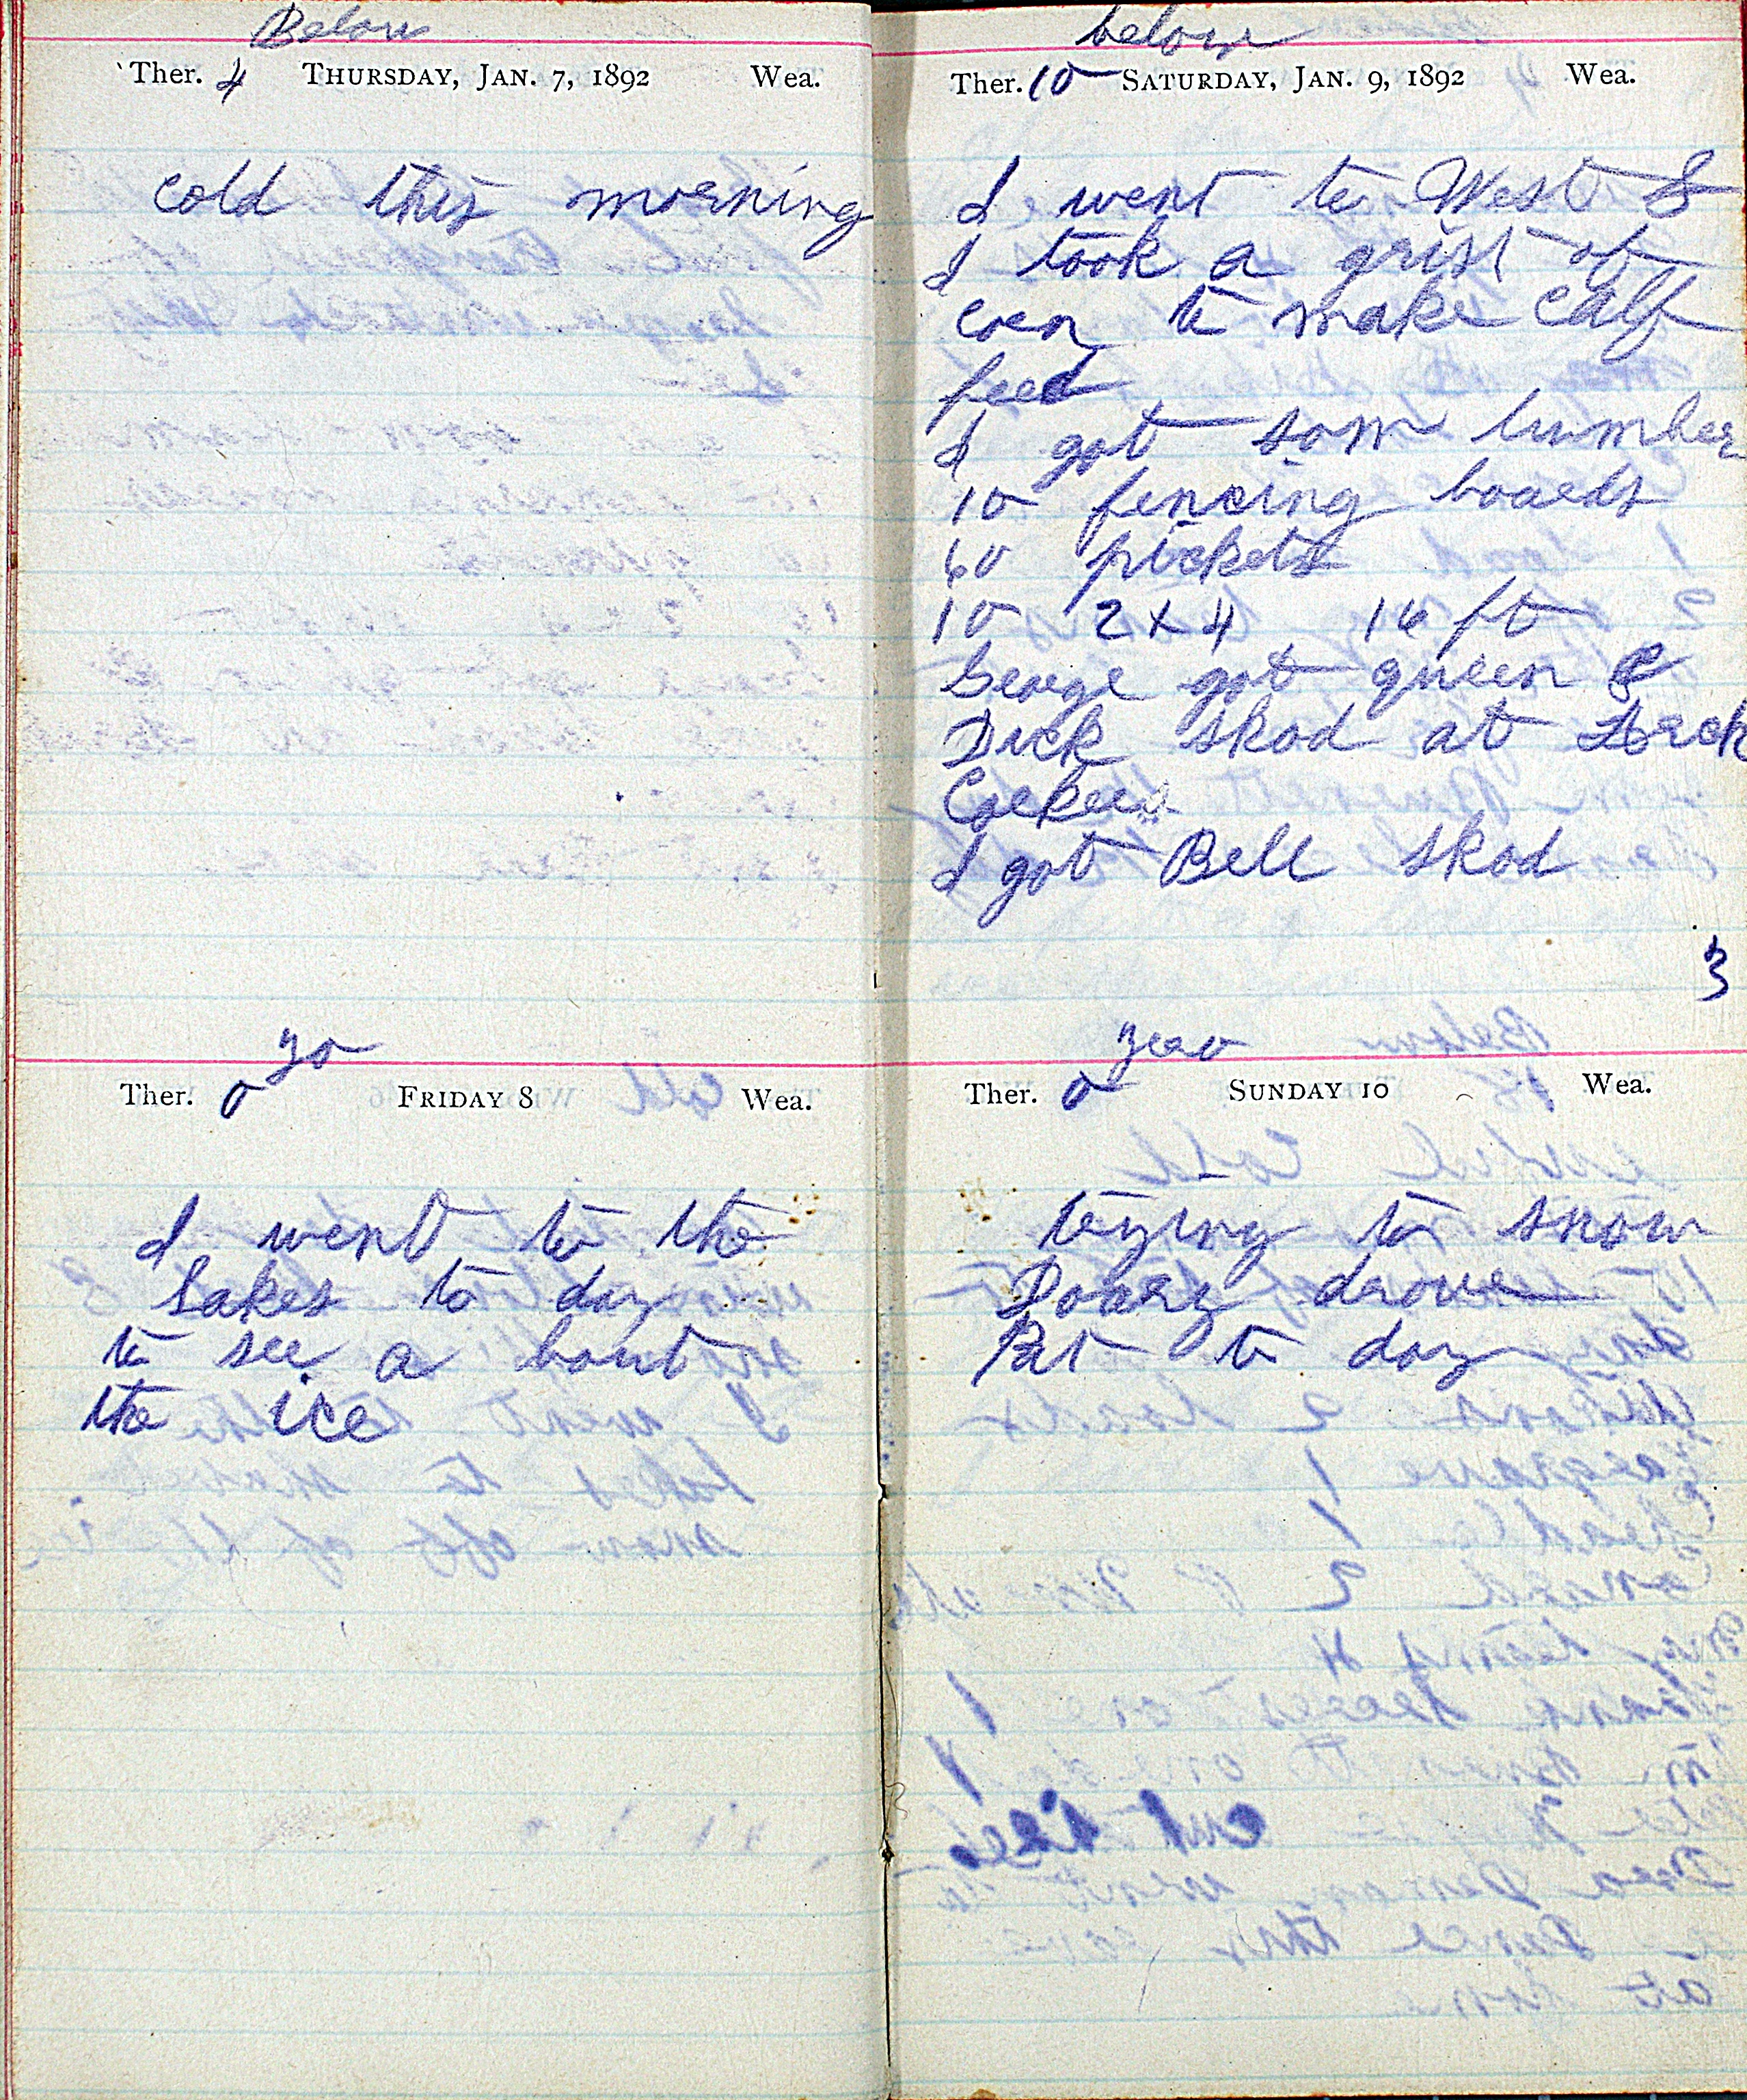 Below
Ther. 4 THURSDAY, JAN. 7, 1892 Wea.
cold this morning
zo
Ther. 0 FRIDAY 8 Wea.
I went to the
Lakes to day
to see a bout
the ice
below
Ther. 10 SATURDAY, JAN. 9, 1892 Wea.
I went to West S
I took a grist of
corn to make calf
feed
I got som lumber
10 fencing boards
60 pickets
10 2 x 4 16 ft
George got queen &
Dick shod at
I got Bell shod
3
zero
Ther. 0 SUNDAY 10 Wea.
trying to snow
drove
Pet to day